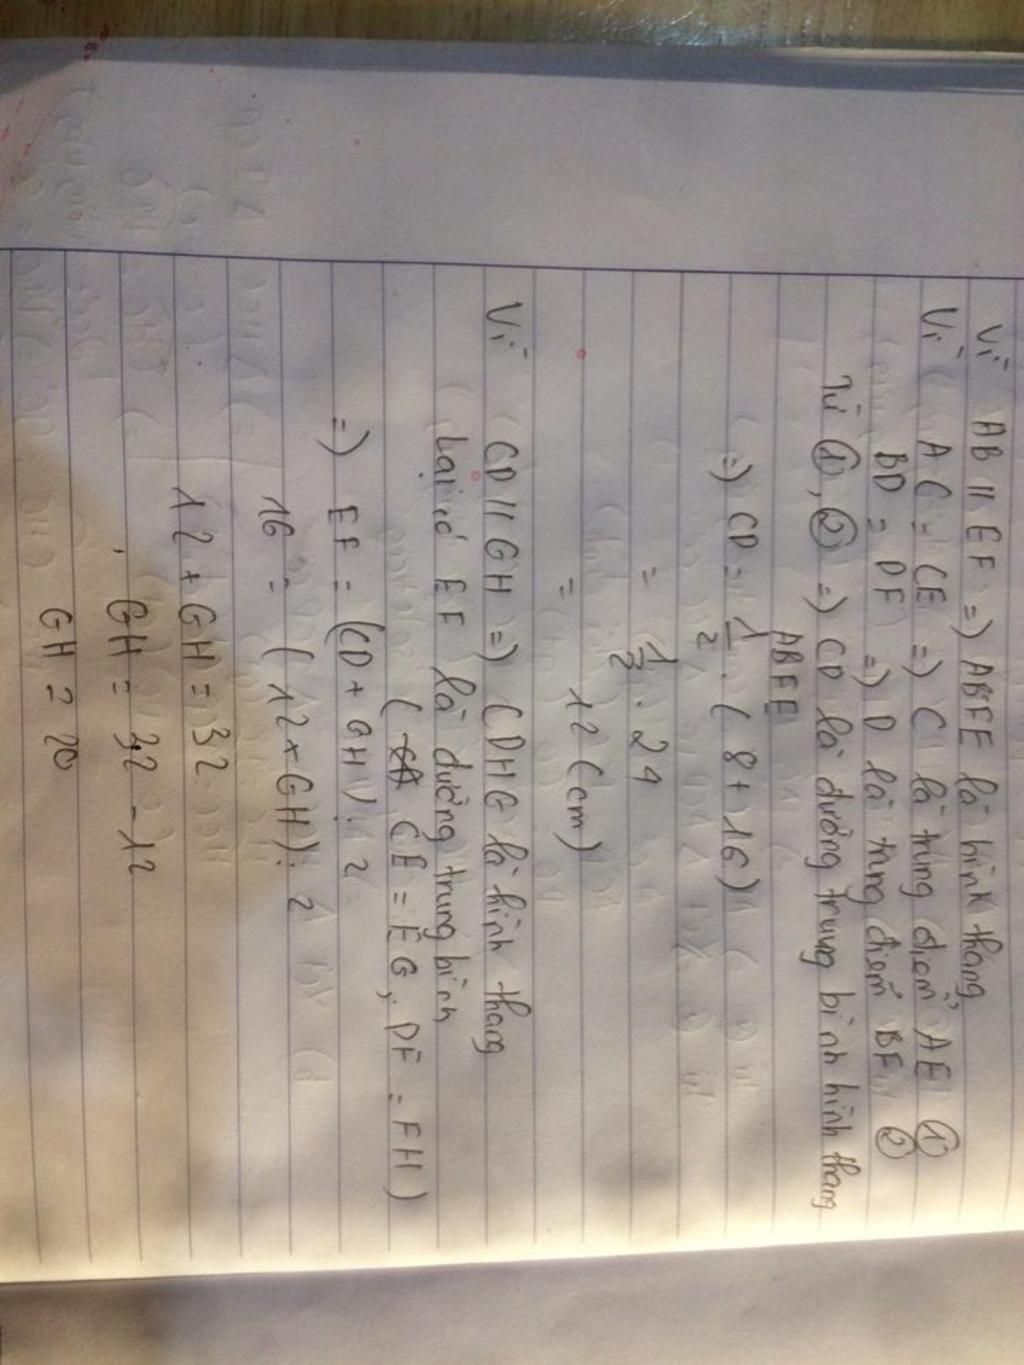 Vì AB // EF => ABFE là hình thang
Vì AC = CE => C là trung điểm AE ①
BD = DF => D là trung điểm BF ②
Từ ①, ② => CD là đường trung bình hình thang
ABFE
=> CD = 1/2 . (8 + 16)
= 1/2 . 24
= 12 (cm)
Vì CD // GH => CDHG là hình thang
Lại có EF là đường trung bình
( CE = EG, DF = FH )
=> EF = (CD + GH) : 2
16 = (12 + GH) : 2
12 + GH = 32
GH = 32 - 12
GH = 20